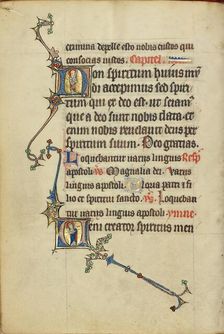 crimina depelle esto nobis custos qui
consocias iustos. Capitel
Non spiritum huius mun
di accepimus sed spiri
tum qui ex deo est ut sciam
que a deo nobis data
nobis reuelauit deus per
spiritum suum. Deo gracias.
Loquebantur uariis linguis Resp
apostoli. Magnalia dei. Variis
linguis apostoli Gloria patri et fi
lio et spiritui sancto. Loqueban
tur uariis linguis apostoli. ymne
Veni creator spiritus men